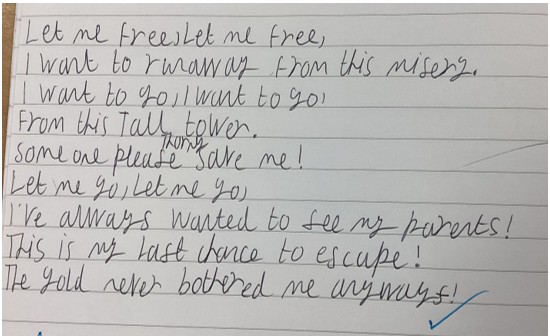 Let me free, Let me free,
I want to runaway from this misery.
I want to go, I want to go,
From this Tall tower.
Thorny
Someone please save me!
Let me go, Let me go,
I've always wanted to see my parents!
This is my last chance to escape!
The gold never bothered me anyways!